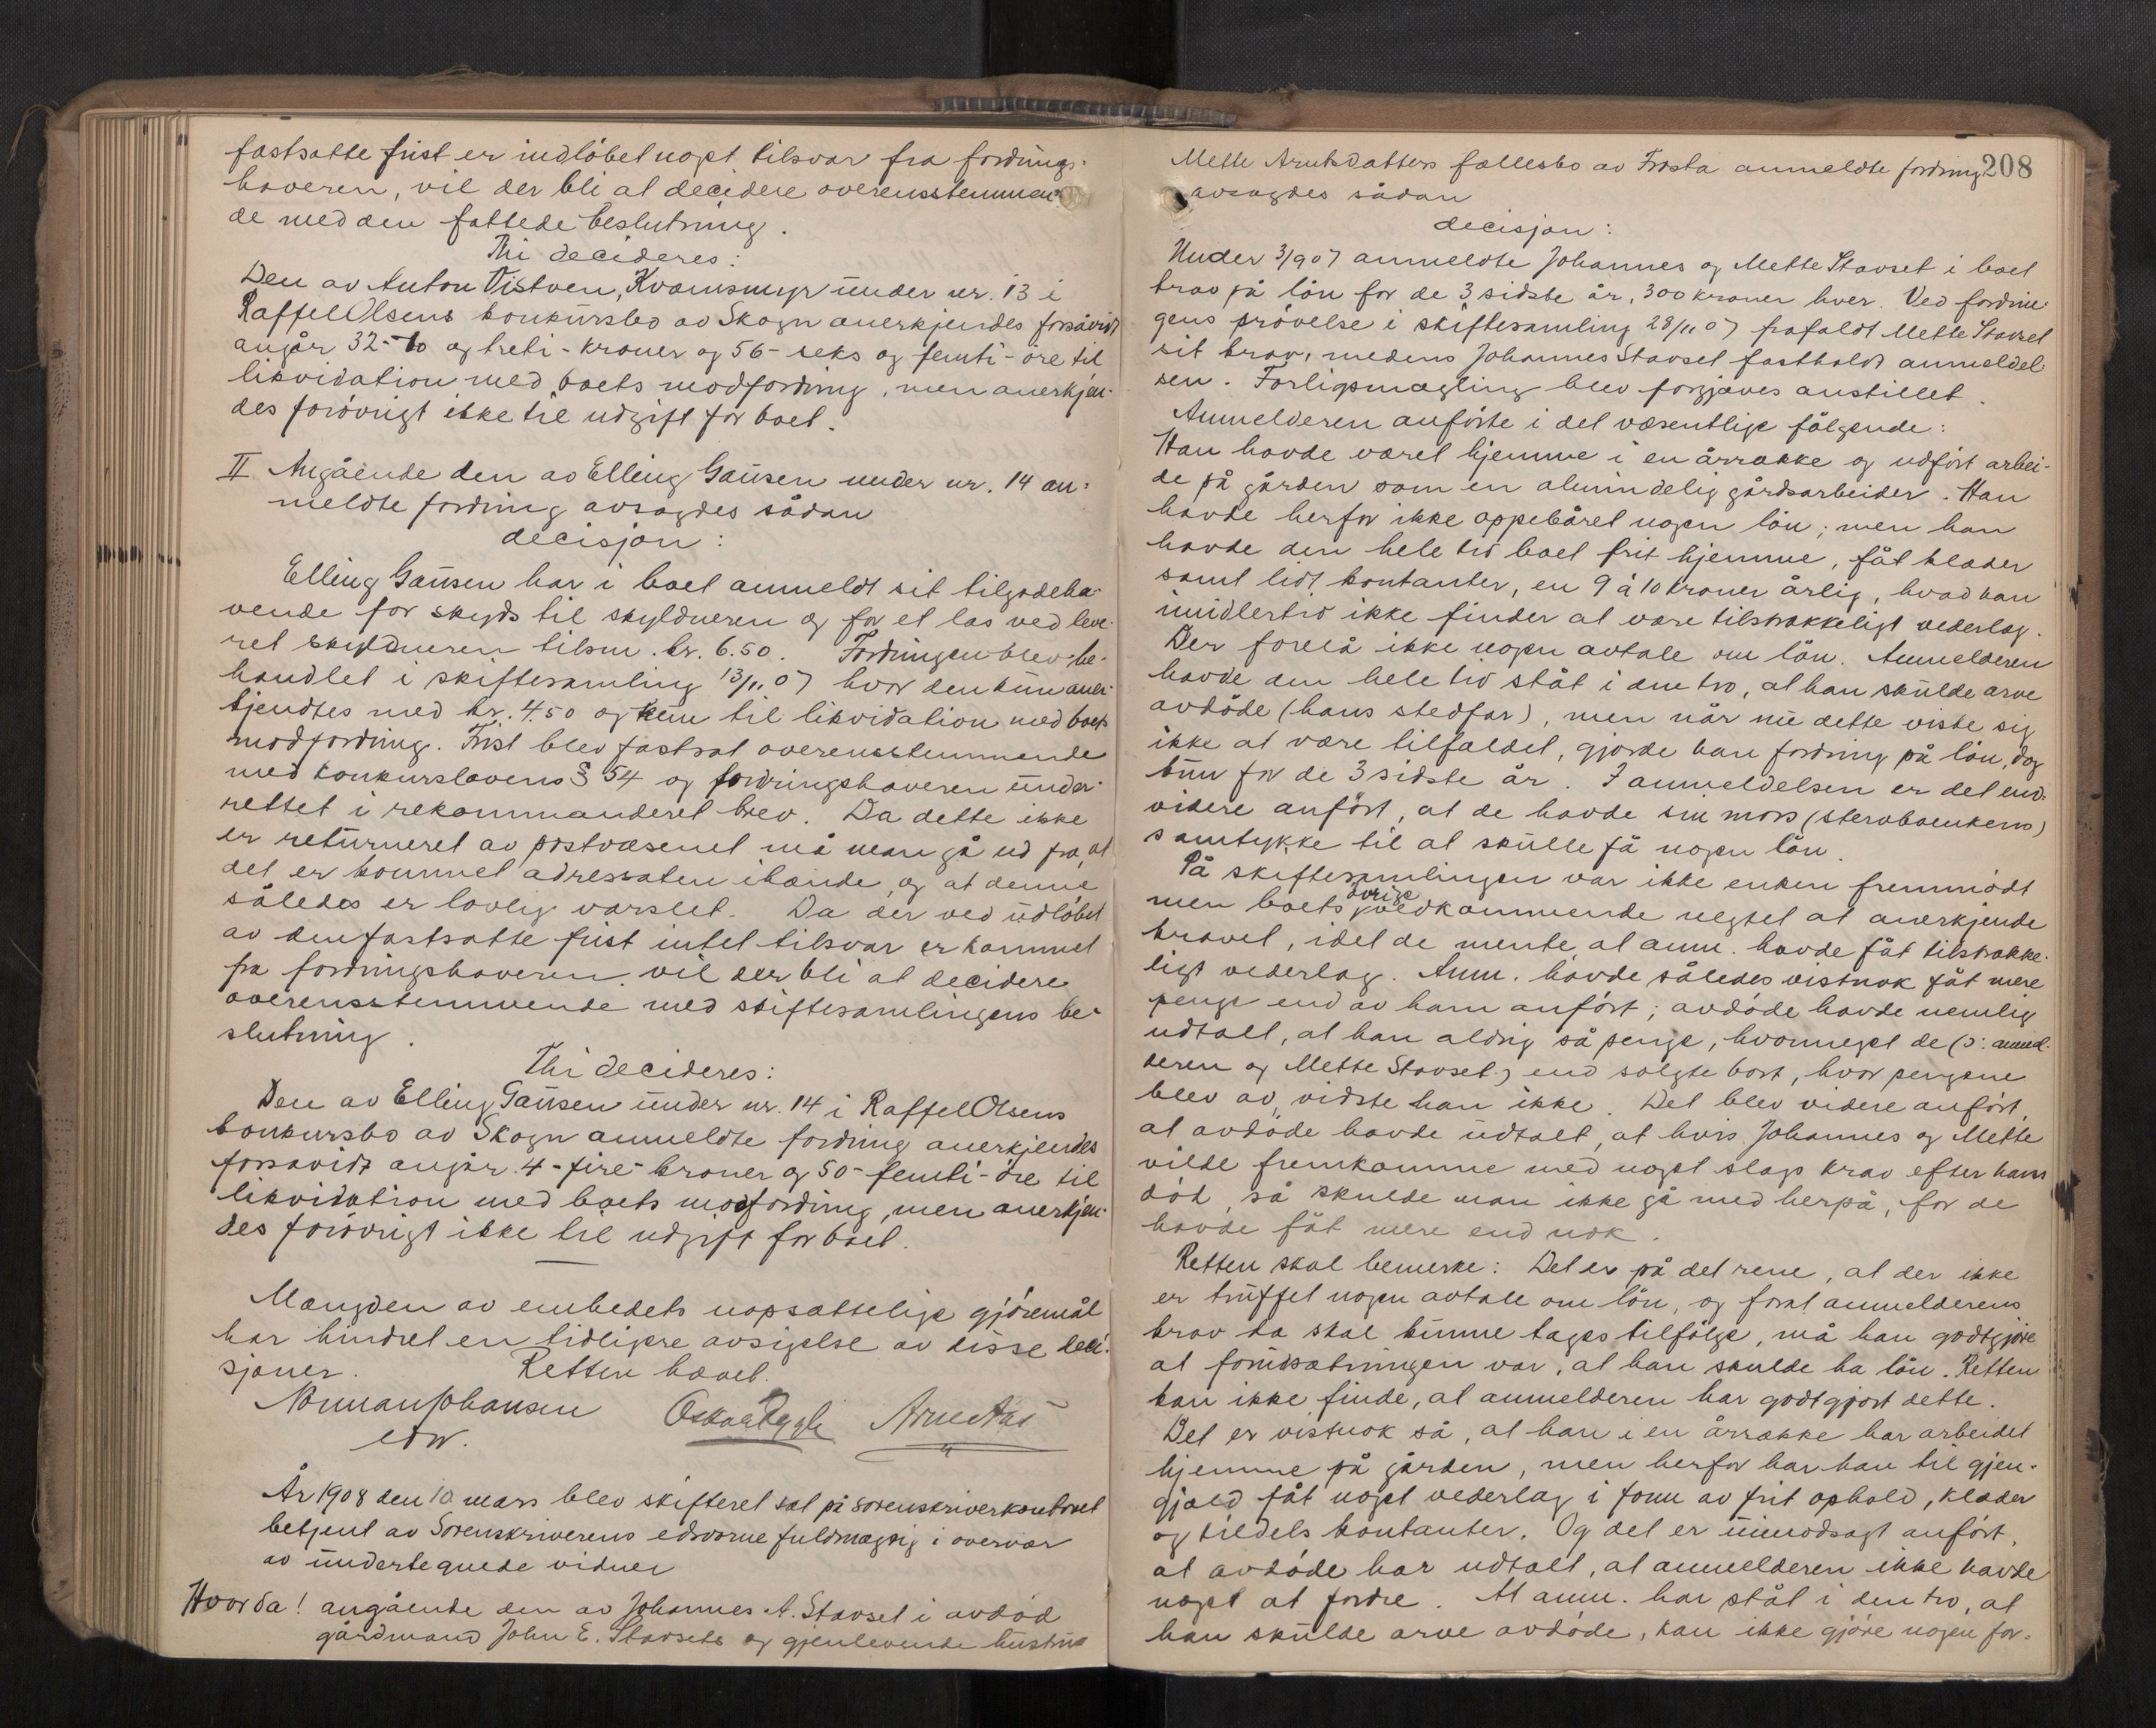 fastsatte frist er indløbet noget tilsvar fra fordrings-
haveren, vil der bli at decidere overensstemmen-
de med den fattede beslutning.
Thi decideres:
Den av Anton Tistven, Kvamsmyr under nr. 13 i
Raffel Olsens konkursbo av Skogn anerkjendes forsåvidt
angår 32-to og treti- kroner og 56- seks og femti- öre til
likvidation med boets modfordring, men anerkjen-
des forövrigt ikke til udgift for boet.
II Angående den av Elling Gausen under nr. 14 an-
meldte fordring avsagdes sådan
decisjon:
Elling Gausen har i boet anmeldt sit tilgodeha-
vende for skyds til skyldneren og for et las ved leve-
ret skyldneren tilsm. kr. 6.50. Fordringen blev be-
handlet i skiftesamling 13/11 07 hvor den kun aner-
kjendtes med kr. 4.50 og kun til likvidation med boets
modfordring. Frist blev fastsat overensstemmende
med konkurslovens § 54 og fordringshaveren under-
rettet i rekommanderet brev. Da dette ikke
er returneret av postvæsenet må man gå ud fra, at
det er kommet adressaten ihænde, og at denne
således er lovlig varslet. Da der ved udløbet
av den fastsatte frist intet tilsvar er kommet
fra fordringshaveren vil der bli at decidere
overensstemmende med skiftesamlingens be-
slutning.
Thi decideres:
Den av Elling Gausen under nr. 14 i Raffel Olsens
konkursbo av Skogn anmeldte fordring anerkjendes
forsavidt angår 4- fire- kroner og 50- femti- öre til
likvidation med boets modfordring, men anerkjen-
des forövrigt ikke til udgift for boet.
Mængden av embedets uopsættelige gjöremål
har hindret en tidligere avsigelse av disse deci-
sjoner. Retten hævet.
Norman Johansen Oskar Arne Aas
edsv.
År 1908 den 10 mars blev skifteret sat på sorenskriverkontoret
betjent av Sorenskriverens edsvorne fuldmægtig i overvær
av undertegnede vidner
Hvorda! angående den av Johannes A. Stavset i avdöd
gårdmand John E. Stavsets og gjenlevende hustru
Mette Arntsdatters fællesbo av Frosta anmeldte fordring 208
avsagdes sådan
decisjon:
Under 3/9 07 anmeldte Johannes og Mette Stavset i boet
krav på lön for de 3 sidste år, 300 kroner hver. Ved fordrin-
gens prövelse i skiftesamling 28/11 07 frafaldt Mette Stavset
sit krav, medens Johannes Stavset fastholdt anmeldel-
sen. Forligsmægling blev forgjæves anstillet.
Anmelderen anförte i det væsentlige fölgende:
Han havde været hjemme i en årrække og udfört arbei-
de på gården som en almindelig gårdsarbeider. Han
havde herfor ikke oppebåret nogen lön; men han
havde den hele tid boet frit hjemme, fåt klæder
samt lidt kontanter, en 9 à 10 kroner årlig, hvad han
imidlertid ikke finder at være tilstrækkeligt vederlag.
Der forelå ikke nogen avtale om lön. Anmelderen
havde den hele tid ståt i den tro, at han skulde arve
avdöde (hans stedfar), men når nu dette viste sig
ikke at være tilfældet, gjorde han fordring på lön, dog
kun for de 3 sidste år. I anmeldelsen er det end-
videre anfört, at de havde sin mors (stervboenkens)
samtykke til at skulle få nogen lön.
På skiftesamlingen var ikke enken fremmödt
men boets övrige vedkommende negtet at anerkjende
kravet, idet de mente, at anm. havde fåt tilstrække-
ligt vederlag. Anm. havde således vistnok fåt mere
penge end av ham anfört; avdöde havde nemlig
udtalt, at han aldrig så penge, hvormeget de (ɔ: anmel-
deren og Mette Stavset) end solgte bort, hvor pengene
blev av, vidste han ikke. Det blev videre anfört,
at avdöde havde udtalt, at hvis Johannes og Mette
vilde fremkomme med noget slags krav efter hans
död, så skulde man ikke gå med herpå, for de
havde fåt mere end nok.
Retten skal bemerke: Det er på det rene, at der ikke
er truffet nogen avtale om lön, og forat anmelderens
krav da skal kunne tages tilfölge, må han godtgjöre
at forudsætningen var, at han skulde ha lön. Retten
kan ikke finde, at anmelderen har godtgjort dette.
Det er vistnok så, at han i en årrække har arbeidet
hjemme på gården, men herfor har han til gjen-
gjæld fåt noget vederlag i form av frit ophold, klæder
og tildels kontanter. Og det er uimodsagt anfört,
at avdöde har udtalt, at anmelderen ikke havde
noget at fordre. At anm. har ståt i den tro, at
han skulde arve avdöde, kan ikke gjöre nogen for-